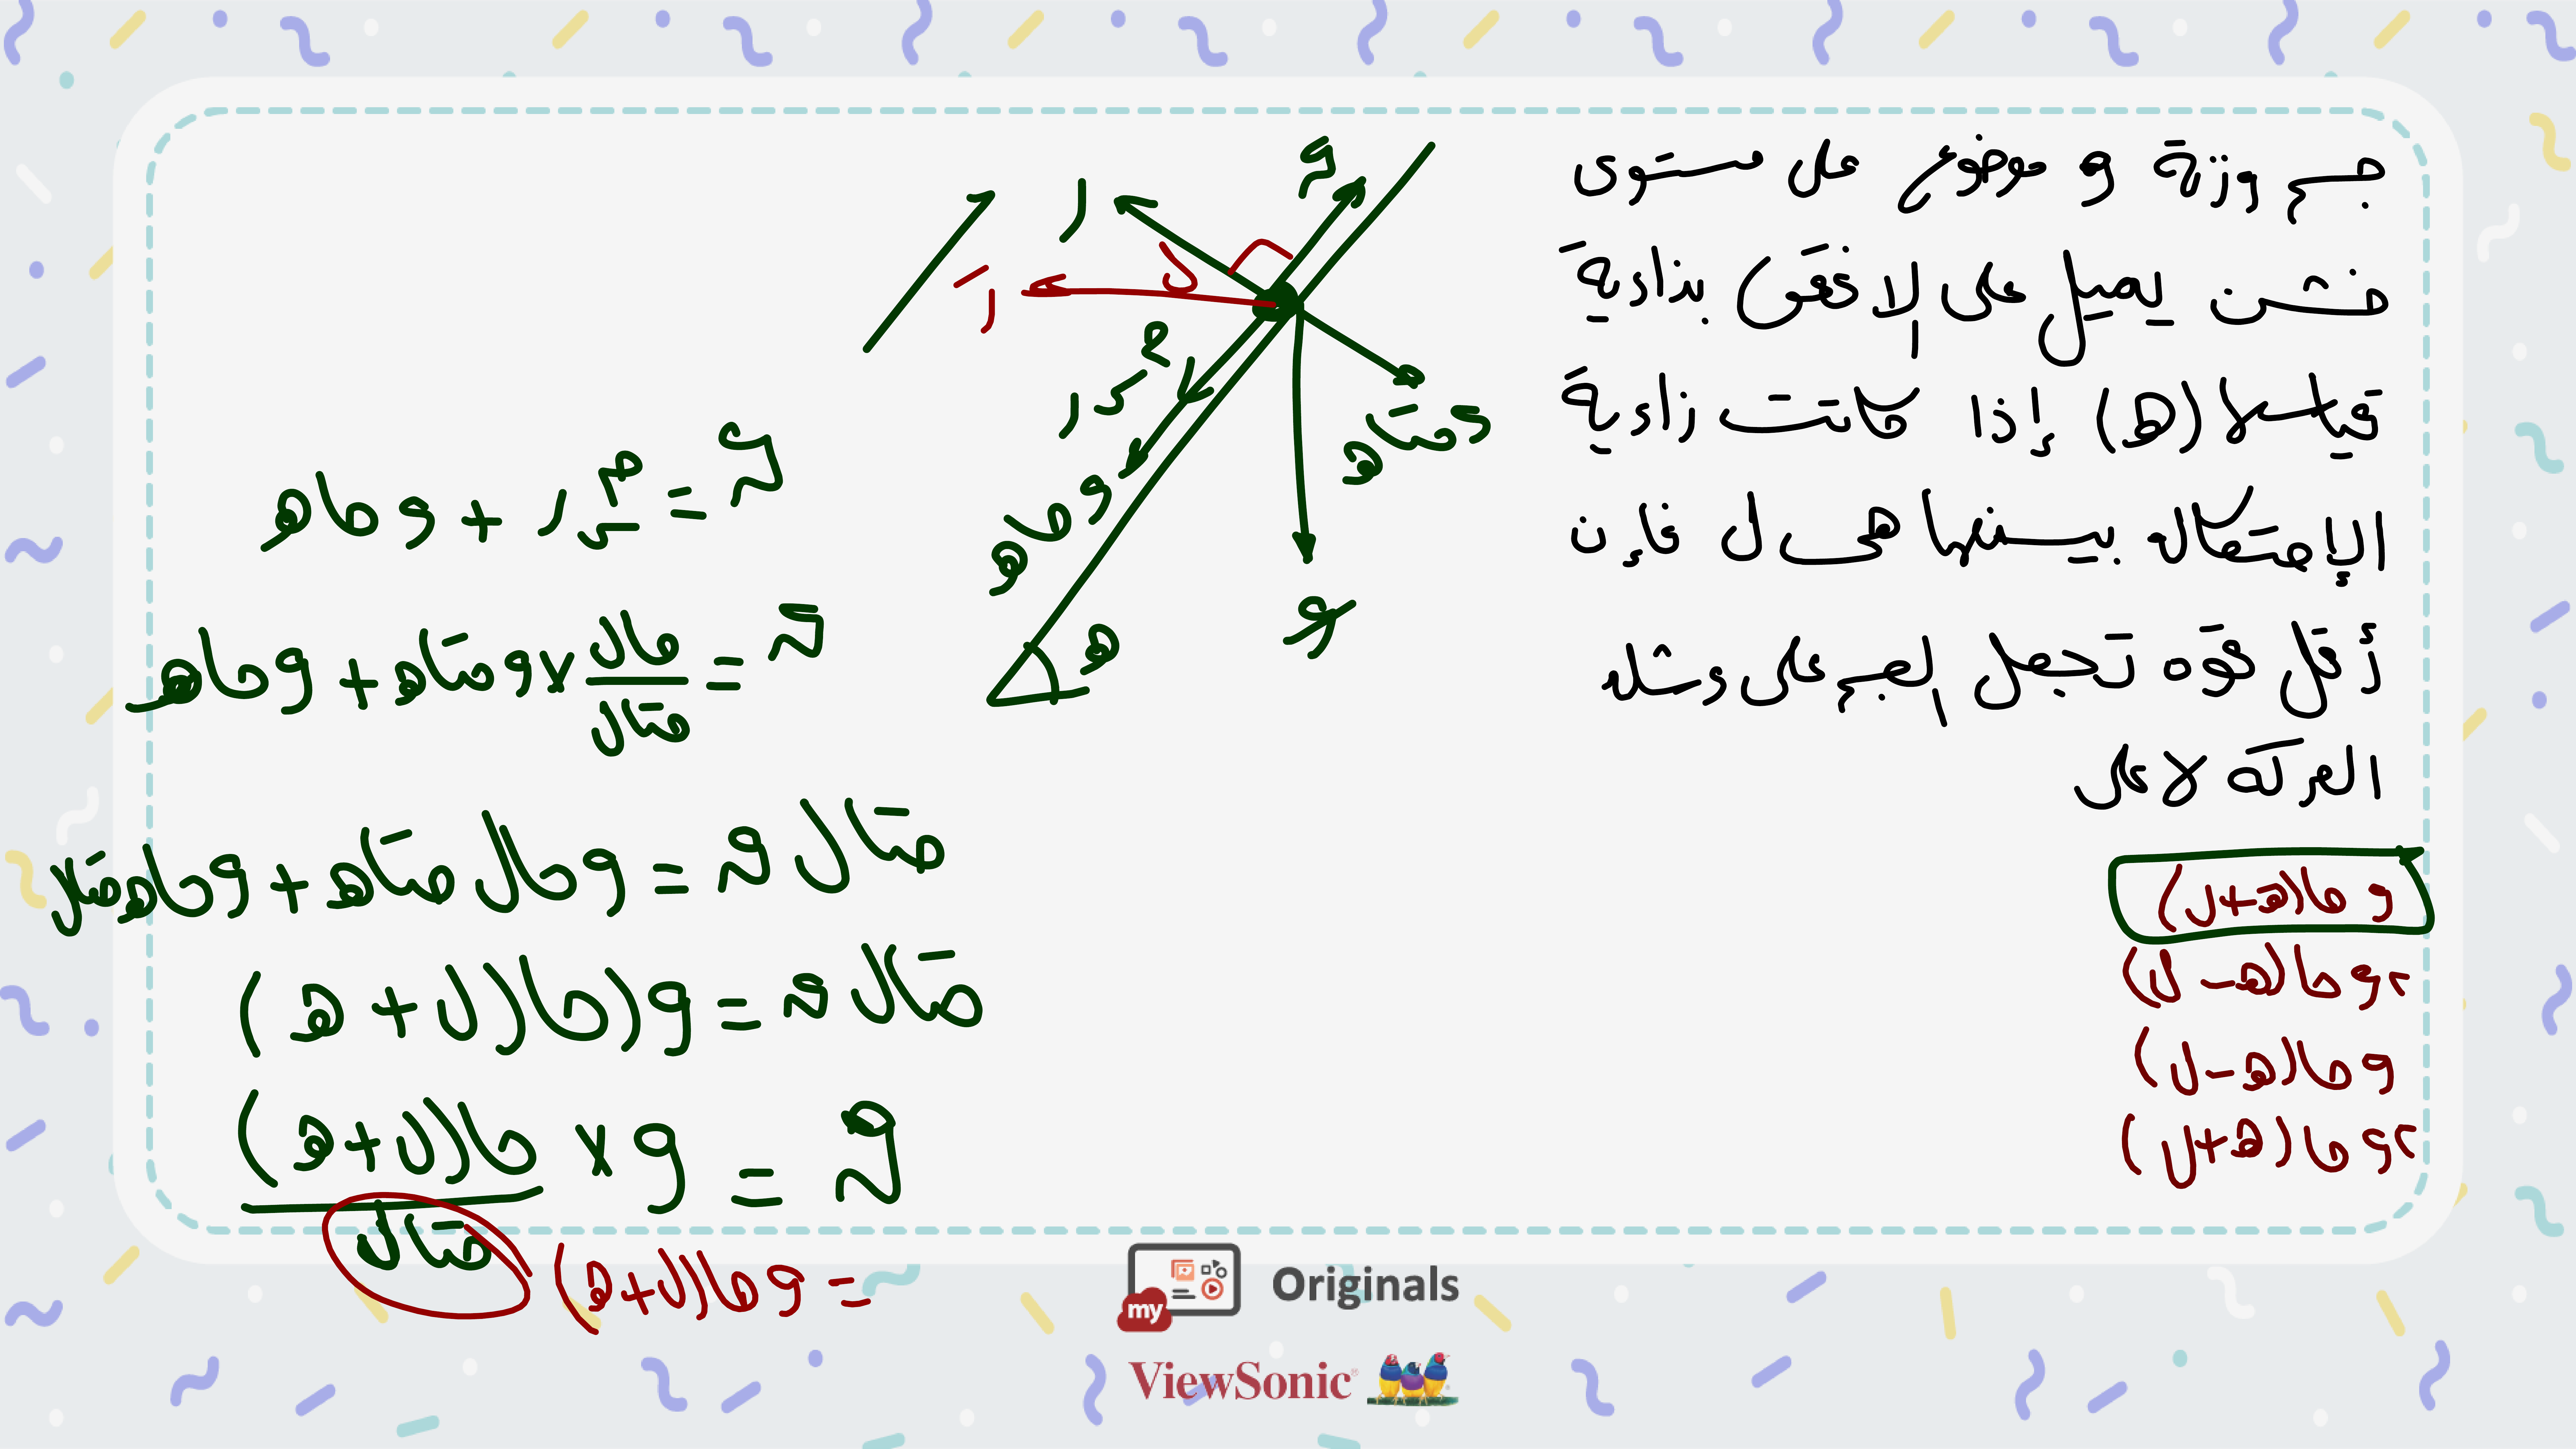 جسم وزنة و موضوع على مستوى
خشن يميل على الافقى بزاوية
قياسها (هـ) إذا كانت زاوية
الإحتكاك بينهما هى ل فإن
أقل قوه تجعل الجسم على وشك
الحركه لاعلى
و حا(هـ+ل)
٢و حا(هـ-ل)
و حا(هـ-ل)
٢و حا(هـ+ل)
ر
رَ
ل
م س ر
و حا هـ
و حتا هـ
و
هـ
ق = م س ر + و حا هـ
ق = حا ل / حتا ل × و حتا هـ + و حا هـ
حتا ل ق = و حا ل حتا هـ + و حا هـ حتا ل
حتا ل ق = و (حا(ل + هـ)
ق = و × حا(ل+هـ) / حتا ل
= و حا(ل+هـ)
my Originals
ViewSonic